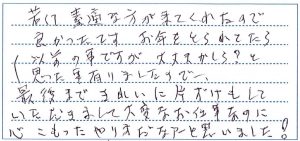 若くて素適な方が来てくれたので
良かったです。お年をとられてたら
以前の事ですが大丈夫かしら?と
思った事有りましたので〜、
最後まできれいに片づけもして
いただきまして大変なお仕事なのに
心こもったやり方だなアーと思いました!